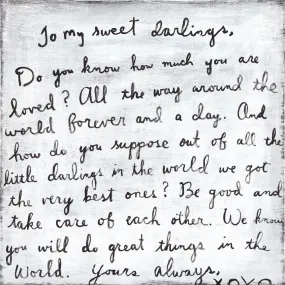 To my sweet darlings,
Do you know how much you are
loved? All the way around the
world forever and a day. And
how do you suppose out of all the
little darlings in the world we got
the very best ones? Be good and
take care of each other. We know
you will do great things in the
World. Yours always,
XOXO